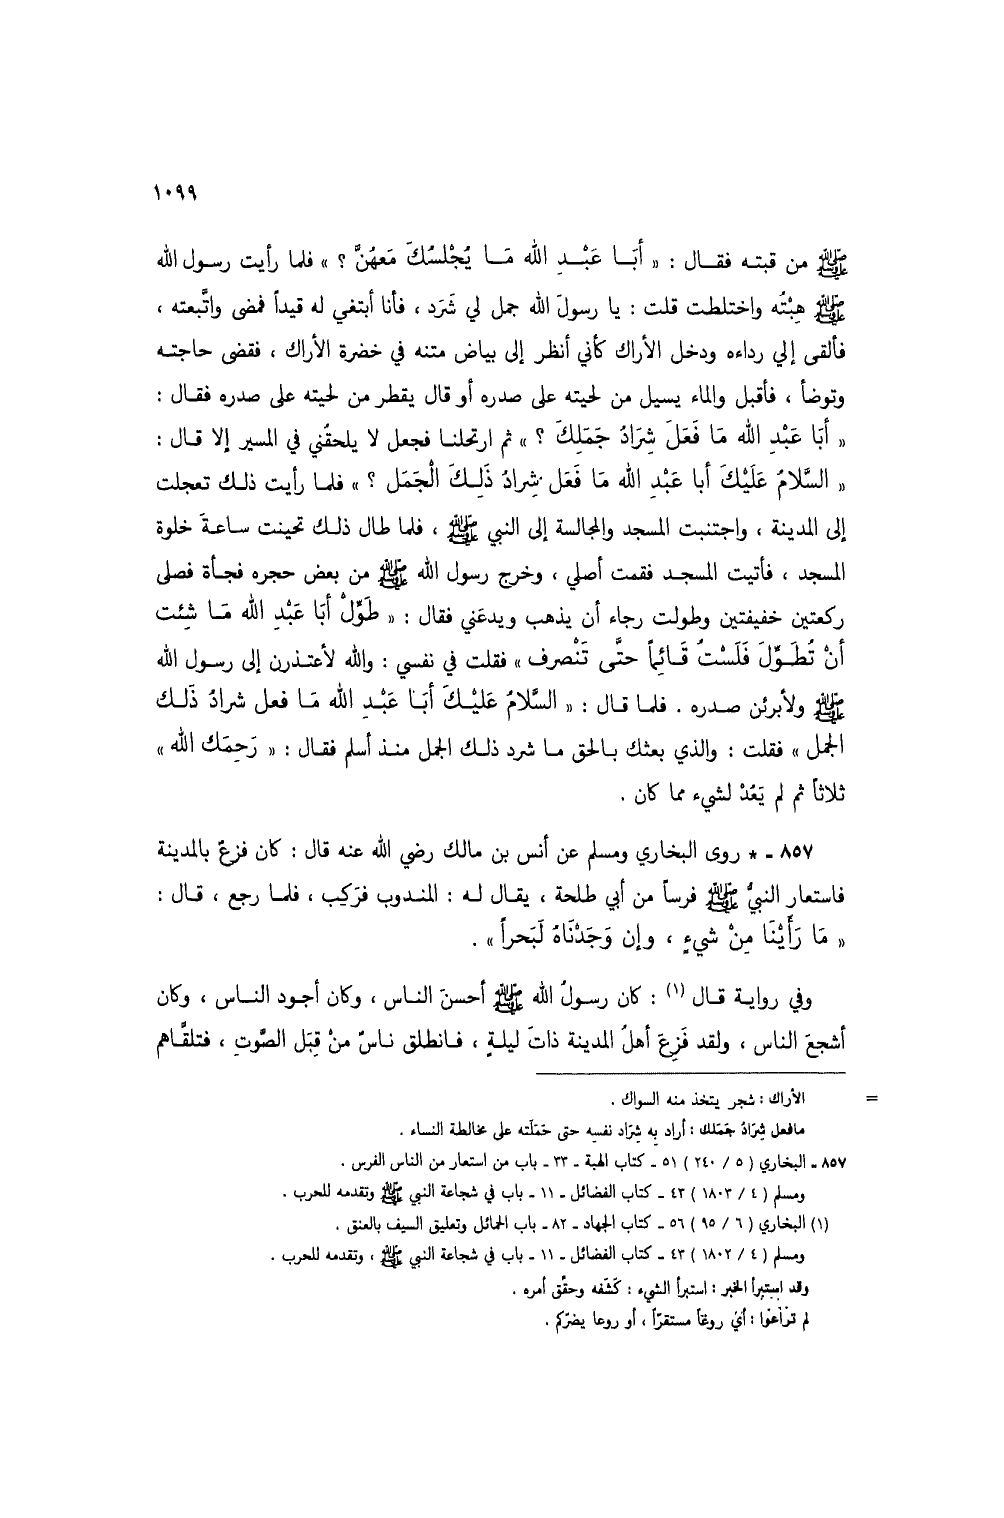 ١٠٩٩
ﷺ من قبته فقال : « أَبَا عَبْدِ الله مَا يُجْلِسُكَ مَعَهُنَّ ؟ » فلما رأيت رسول الله
ﷺ هِبْتُه واختلطت قلت : يا رسولَ الله جمل لي شَرَد ، فأنا أبتغي له قيداً فمضى واتَّبعته ،
فألقى إلي رداءه ودخل الأراك كأني أنظر إلى بياض متنه في خضرة الأراك ، فقضى حاجته
وتوضأ ، فأقبل والماء يسيل من لحيته على صدره أو قال يقطر من لحيته على صدره فقال :
« أَبَا عَبْدِ الله مَا فَعَلَ شِرَادُ جَمَلِكَ ؟ » ثم ارتحلنا فجعل لا يلحقُني في المسير إلا قال :
« السَّلامُ عَلَيْكَ أبا عَبْدِ الله مَا فَعَل شِرادُ ذَلِكَ الْجَمَل ؟ » فلما رأيت ذلك تعجلت
إلى المدينة ، واجتنبت المسجد والمجالسة إلى النبي ﷺ ، فلما طال ذلك تحينت ساعةَ خلوة
المسجد ، فأتيت المسجد فقمت أصلي ، وخرج رسول الله ﷺ من بعض حجره فجأة فصلى
ركعتين خفيفتين وطولت رجاء أن يذهب ويدعَني فقال : « طَوِّلْ أبَا عَبْد الله مَا شِئت
أنْ تُطَوِّلَ فَلَسْتُ قَائِماً حتَّى تَنْصرف » فقلت في نفسي : والله لأعتذرن إلى رسول الله
ﷺ ولأبرئن صدره . فلما قال : « السَّلامُ عَلَيْكَ أبَا عَبْدِ الله مَا فعل شرادُ ذَلك
الجمل » فقلت : والذي بعثك بالحق ما شرد ذلك الجمل منذ أسلم فقال : « رَحِمَك الله »
ثلاثاً ثم لم يَعُدْ لشيء مما كان .
٨٥٧ - * روى البخاري ومسلم عن أنس بن مالك رضي الله عنه قال : كان فزعٌ بالمدينة
فاستعار النبيُّ ﷺ فرساً من أبي طلحة ، يقال له : المندوب فرَكِب ، فلما رجع ، قال :
« مَا رَأَيْنَا مِنْ شيءٍ ، وإن وَجَدْنَاهُ لَبَحراً » .
وفي رواية قال (١) : كان رسولُ الله ﷺ أحسنَ الناس ، وكان أجود الناس ، وكان
أشجعَ الناس ، ولقد فَزِعَ أهلُ المدينة ذاتَ ليلةٍ ، فانطلق ناسٌ منْ قِبَل الصَّوتِ ، فتلقَّاهم
= الأراك : شجر يتخذ منه السواك .
مافعل شِرَادُ جَمَلك : أراد به شِرَاد نفسِه حتى حَمَلَته على مخالطة النساء .
٨٥٧ - البخاري ( ٥ / ٢٤٠ ) ٥١ - كتاب الهبة - ٣٣ - باب من استعار من الناس الفرس .
ومسلم ( ٤ / ١٨٠٣ ) ٤٣ - كتاب الفضائل - ١١ - باب في شجاعة النبي ﷺ وتقدمه للحرب .
(١) البخاري ( ٦ / ٩٥ ) ٥٦ - كتاب الجهاد - ٨٢ - باب الحمائل وتعليق السيف بالعنق .
ومسلم ( ٤ / ١٨٠٢ ) ٤٣ - كتاب الفضائل - ١١ - باب في شجاعة النبي ﷺ ، وتقدمه للحرب .
وقد استبرأ الخبر : استبرأ الشيء : كَشَفه وحقَّق أمره .
لم تَرَاعَوْا : أيْ روعاً مستقرّاً ، أو روعا يضرّكم .